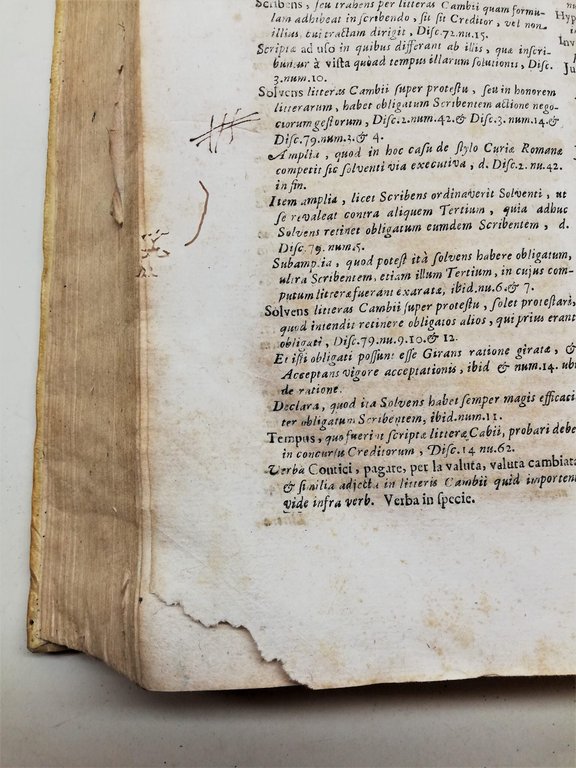 Scribens, seu trahens per litteras Cambii quam formu-
lam adhibeat in scribendo, sit sit Creditor, vel non
illius, cui tractam dirigit, Disc.72.nu.15.
Scriptæ ad uso in quibus differant ab illis, quæ inscri-
buntur à vista quoad tempus illarum solutionis, Disc.
3.num.10.
Solvens litteras Cambii super protestu, seu in honorem
litterarum, habet obligatum Scribentem actione nego-
ciorum gestorum, Disc.2.num.42.& Disc.3.num.14.&
Disc.79.num.3.& 4.
Amplia, quod in hoc casu de stylo Curiæ Romanæ
competit sic solventi via executiva, d. Disc.2.nu.42.
in fin.
Item amplia, licet Scribens ordinaverit Solventi, ut
se revaleat contra aliquem Tertium, quia adhuc
Solvens retinet obligatum eumdem Scribentem, d.
Disc.79.num.5.
Subamplia, quod potest ità solvens habere obligatum,
ultra Scribentem, etiam illum Tertium, in cujus com-
putum litteræ fuerant exaratæ, ibid.nu.6.& 7.
Solvens litteras Cambii super protestu, solet protestari,
quod intendit retinere obligatos alios, qui prius erant
obligati, Disc.79.nu.9.10.& 12.
Et isti obligati possunt esse Girans ratione giratæ, &
Acceptans vigore acceptationis, ibid & num.14. ubi
de ratione.
Declara, quod ita Solvens habet semper magis efficaci
ter obligatum Scribentem, ibid.num.11.
Tempus, quo fuerint scriptæ litteræ Cabii, probari debe
in concursu Creditorum, Disc.14 nu.62.
Verba Contici, pagate, per la valuta, valuta cambiata
& similia adjecta in litteris Cambii quid importent
vide infra verb. Verba in specie.